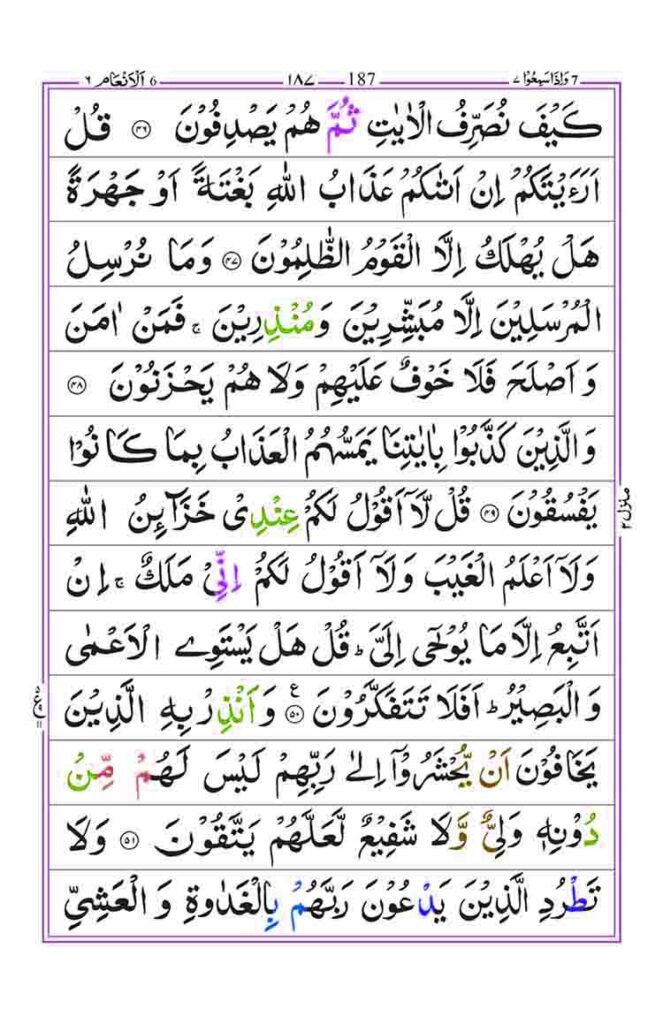 7 وَاِذَاسَمِعُوْا ۷ 187 ۱۸۷ 6 اَلْاَنْعَام ۶
كَيْفَ نُصَرِّفُ الْاٰيٰتِ ثُمَّ هُمْ يَصْدِفُوْنَ ﴿۴۶﴾ قُلْ
اَرَءَيْتَكُمْ اِنْ اَتٰىكُمْ عَذَابُ اللّٰهِ بَغْتَةً اَوْ جَهْرَةً
هَلْ يُهْلَكُ اِلَّا الْقَوْمُ الظّٰلِمُوْنَ ﴿۴۷﴾ وَمَا نُرْسِلُ
الْمُرْسَلِيْنَ اِلَّا مُبَشِّرِيْنَ وَمُنْذِرِيْنَ ۚ فَمَنْ اٰمَنَ
وَ اَصْلَحَ فَلَا خَوْفٌ عَلَيْهِمْ وَلَا هُمْ يَحْزَنُوْنَ ﴿۴۸﴾
وَ الَّذِيْنَ كَذَّبُوْا بِاٰيٰتِنَا يَمَسُّهُمُ الْعَذَابُ بِمَا كَانُوْا
يَفْسُقُوْنَ ﴿۴۹﴾ قُلْ لَّآ اَقُوْلُ لَكُمْ عِنْدِيْ خَزَآئِنُ اللّٰهِ
وَلَآ اَعْلَمُ الْغَيْبَ وَلَآ اَقُوْلُ لَكُمْ اِنِّيْ مَلَكٌ ۚ اِنْ
اَتَّبِعُ اِلَّا مَا يُوْحٰٓى اِلَيَّ ؕ قُلْ هَلْ يَسْتَوِي الْاَعْمٰى
وَ الْبَصِيْرُ ؕ اَفَلَا تَتَفَكَّرُوْنَ ﴿۵۰﴾ ع وَاَنْذِرْ بِهِ الَّذِيْنَ
يَخَافُوْنَ اَنْ يُّحْشَرُوْٓا اِلٰى رَبِّهِمْ لَيْسَ لَهُمْ مِّنْ
دُوْنِهٖ وَلِيٌّ وَّلَا شَفِيْعٌ لَّعَلَّهُمْ يَتَّقُوْنَ ﴿۵۱﴾ وَلَا
تَطْرُدِ الَّذِيْنَ يَدْعُوْنَ رَبَّهُمْ بِالْغَدٰوةِ وَ الْعَشِيِّ
منزل ۲